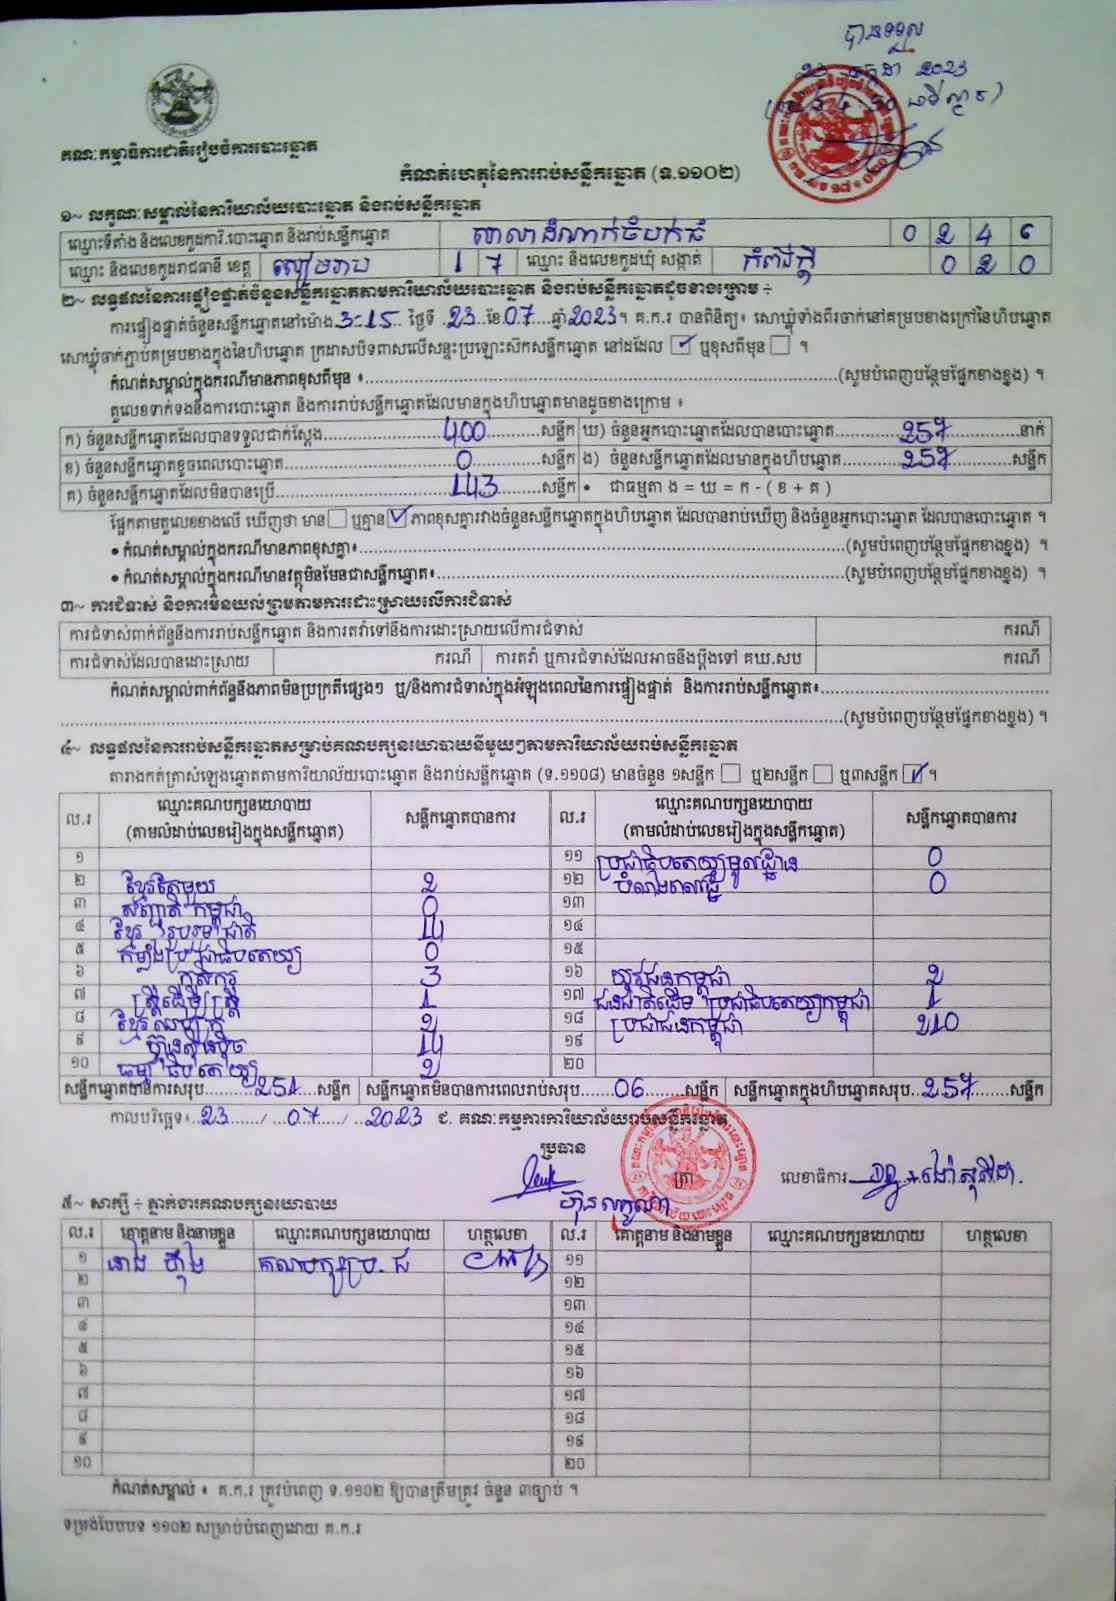 បានទទួល
23 កក្កដា 2023
គណៈកម្មាធិការជាតិរៀបចំការបោះឆ្នោត
កំណត់ហេតុនៃការរាប់សន្លឹកឆ្នោត (ទ.១១០២)
១~ លក្ខណៈសម្គាល់នៃការិយាល័យបោះឆ្នោត និងរាប់សន្លឹកឆ្នោត
ឈ្មោះទីតាំង និងលេខកូដការិ.បោះឆ្នោត និងរាប់សន្លឹកឆ្នោត សាលាដំណាក់ចំបក់ធំ 0 2 4 6
ឈ្មោះ និងលេខកូដរាជធានី ខេត្ត សៀមរាប 1 7 ឈ្មោះ និងលេខកូដឃុំ សង្កាត់ កំពង់ក្ដី 0 2 0
២~ លទ្ធផលនៃការផ្ទៀងផ្ទាត់ចំនួនសន្លឹកឆ្នោតតាមការិយាល័យបោះឆ្នោត និងរាប់សន្លឹកឆ្នោតដូចខាងក្រោម ÷
ការផ្ទៀងផ្ទាត់ចំនួនសន្លឹកឆ្នោតនៅម៉ោង 3:15 ថ្ងៃទី 23 ខែ 07 ឆ្នាំ 2023 ។ គ.ក.រ បានពិនិត្យ៖ សោឃ្លុំទាំងពីរចាក់នៅគម្របខាងក្រៅនៃហិបឆ្នោត
សោឃ្លុំចាក់ភ្ជាប់គម្របខាងក្នុងនៃហិបឆ្នោត ក្រដាសបិទពាសលើសន្ទះប្រឡោះសិកសន្លឹកឆ្នោត នៅដដែល ✓ ឬខុសពីមុន ។
កំណត់សម្គាល់ក្នុងករណីមានភាពខុសពីមុន ៖ (សូមបំពេញបន្ថែមផ្នែកខាងខ្នង) ។
តួលេខទាក់ទងនឹងការបោះឆ្នោត និងការរាប់សន្លឹកឆ្នោតដែលមានក្នុងហិបឆ្នោតមានដូចខាងក្រោម ៖
ក) ចំនួនសន្លឹកឆ្នោតដែលបានទទួលជាក់ស្ដែង 400 សន្លឹក ឃ) ចំនួនអ្នកបោះឆ្នោតដែលបានបោះឆ្នោត 257 នាក់
ខ) ចំនួនសន្លឹកឆ្នោតខូចពេលបោះឆ្នោត 0 សន្លឹក ង) ចំនួនសន្លឹកឆ្នោតដែលមានក្នុងហិបឆ្នោត 257 សន្លឹក
គ) ចំនួនសន្លឹកឆ្នោតដែលមិនបានប្រើ 143 សន្លឹក • ជាធម្មតា ង = ឃ = ក - ( ខ + គ )
ផ្អែកតាមតួលេខខាងលើ ឃើញថា មាន ឬគ្មាន ✓ ភាពខុសគ្នារវាងចំនួនសន្លឹកឆ្នោតក្នុងហិបឆ្នោត ដែលបានរាប់ឃើញ និងចំនួនអ្នកបោះឆ្នោត ដែលបានបោះឆ្នោត ។
• កំណត់សម្គាល់ក្នុងករណីមានភាពខុសគ្នា៖ (សូមបំពេញបន្ថែមផ្នែកខាងខ្នង) ។
• កំណត់សម្គាល់ក្នុងករណីមានវត្ថុមិនមែនជាសន្លឹកឆ្នោត៖ (សូមបំពេញបន្ថែមផ្នែកខាងខ្នង) ។
៣~ ការជំទាស់ និងការមិនយល់ព្រមតាមការដោះស្រាយលើការជំទាស់
ការជំទាស់ពាក់ព័ន្ធនឹងការរាប់សន្លឹកឆ្នោត និងការតវ៉ាទៅនឹងការដោះស្រាយលើការជំទាស់ ករណី
ការជំទាស់ដែលបានដោះស្រាយ ករណី ការតវ៉ា ឬការជំទាស់ដែលអាចនឹងប្ដឹងទៅ គឃ.សប ករណី
កំណត់សម្គាល់ពាក់ព័ន្ធនឹងភាពមិនប្រក្រតីផ្សេងៗ ឬ/និងការជំទាស់ក្នុងអំឡុងពេលនៃការផ្ទៀងផ្ទាត់ និងការរាប់សន្លឹកឆ្នោត៖
(សូមបំពេញបន្ថែមផ្នែកខាងខ្នង) ។
៤~ លទ្ធផលនៃការរាប់សន្លឹកឆ្នោតសម្រាប់គណបក្សនយោបាយនីមួយៗតាមការិយាល័យរាប់សន្លឹកឆ្នោត
តារាងកត់ត្រាសំឡេងឆ្នោតតាមការិយាល័យបោះឆ្នោត និងរាប់សន្លឹកឆ្នោត (ទ.១១០៨) មានចំនួន ១សន្លឹក ឬ២សន្លឹក ឬ៣សន្លឹក ✓ ។
ល.រ ឈ្មោះគណបក្សនយោបាយ (តាមលំដាប់លេខរៀងក្នុងសន្លឹកឆ្នោត) សន្លឹកឆ្នោតបានការ ល.រ ឈ្មោះគណបក្សនយោបាយ (តាមលំដាប់លេខរៀងក្នុងសន្លឹកឆ្នោត) សន្លឹកឆ្នោតបានការ
១ ១១ ប្រជាធិបតេយ្យមូលដ្ឋាន 0
២ ខ្មែរតែមួយ 2 ១២ បំណងពលរដ្ឋ 0
៣ សញ្ជាតិកម្ពុជា 0 ១៣
៤ ខ្មែររួបរួមជាតិ 14 ១៤
៥ កម្លាំងប្រជាធិបតេយ្យ 0 ១៥
៦ កសិករ 3 ១៦ យុវជនកម្ពុជា 2
៧ ស្ត្រីដើម្បីស្ត្រី 1 ១៧ ជនជាតិដើមប្រជាធិបតេយ្យកម្ពុជា 1
៨ ខ្មែរឈប់ក្រ 2 ១៨ ប្រជាជនកម្ពុជា 210
៩ ហ៊្វុនស៊ិនប៉ិច 14 ១៩
១០ ធម្មាធិបតេយ្យ 2 ២០
សន្លឹកឆ្នោតបានការសរុប 251 សន្លឹក សន្លឹកឆ្នោតមិនបានការពេលរាប់សរុប 06 សន្លឹក សន្លឹកឆ្នោតក្នុងហិបឆ្នោតសរុប 257 សន្លឹក
កាលបរិច្ឆេទ÷ 23 / 07 / 2023 ជ. គណៈកម្មការការិយាល័យរាប់សន្លឹកឆ្នោត
ប្រធាន
ត្រា លេខាធិការ
ហ៊ុន លក្ខណា
៥~ សាក្សី ÷ ភ្នាក់ងារគណបក្សនយោបាយ
ល.រ គោត្តនាម និងនាមខ្លួន ឈ្មោះគណបក្សនយោបាយ ហត្ថលេខា ល.រ គោត្តនាម និងនាមខ្លួន ឈ្មោះគណបក្សនយោបាយ ហត្ថលេខា
១ គណបក្សប្រ.ជ ១១
២ ១២
៣ ១៣
៤ ១៤
៥ ១៥
៦ ១៦
៧ ១៧
៨ ១៨
៩ ១៩
១០ ២០
កំណត់សម្គាល់ ៖ គ.ក.រ ត្រូវបំពេញ ទ.១១០២ ឱ្យបានត្រឹមត្រូវ ចំនួន ៣ច្បាប់ ។
ទម្រង់បែបបទ ១១០២ សម្រាប់បំពេញដោយ គ.ក.រ